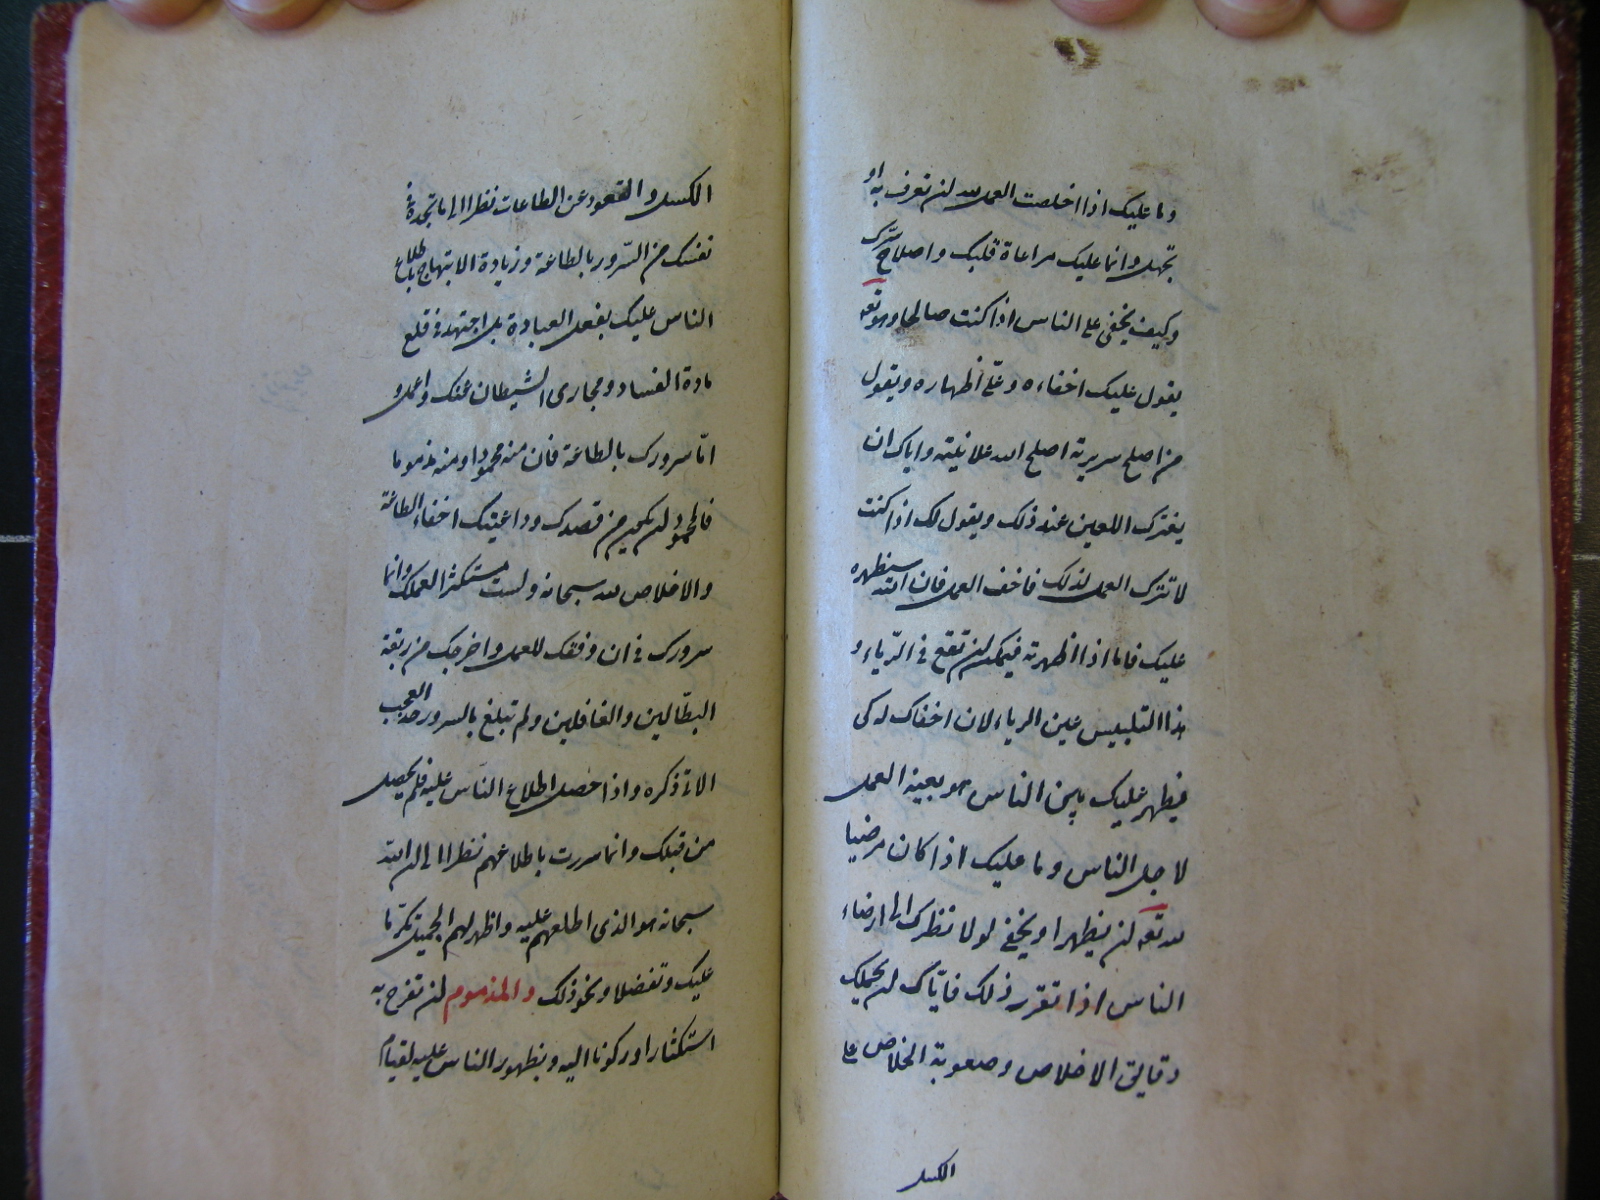 وما عليك اذا اخلصت العمل لله ان تعرف به او
تجهل وانما عليك مراعاة قلبك واصلاح سرك
وكيف يخفى على الناس اذا كنت صالحا وهو تعه
يقول عليك اخفاءه وعلّي اظهاره ويقول
من اصلح سريرته اصلح الله علانيته واياك ان
يغرك اللعين عند ذلك ويقول لك اذا كنت
لا تترك العمل لذلك فاخف العمل فان الله سيظهره
عليك فاما اذا اظهرته فيمكن ان تقع في الرّياء و
هذا التلبيس عين الرياء لان اخفاك له كى
يظهر عليك بين الناس هو بعينه العمل
لاجل الناس وما عليك اذا كان مرضيا
لله تعه ان يظهر او يخفى لولا نظرك الى ارضاء
الناس اذا تقرر ذلك فايّاك ان يحملك
دقايق الاخلاص وصعوبة الخلاص على
الكسل
الكسل والقعود عن الطاعات نظرا الى ما تجده في
نفسك من السّرور بالطاعة وزيادة الابتهاج باطلاع
الناس عليك بفعل العبادة بل اجتهد في قلع
مادة الفساد ومجارى الشيطان عنك واعمل و
امّا سرورك بالطاعة فان منه محمودا ومنه مذموما
فالمحمود ان يكون من قصدك وداعيتك اخفاء الطاعة
والاخلاص لله سبحانه ولست مستكثرا لعملك وانما
سرورك في ان وفقك للعمل واخرجك من ربقة
البطّالين والغافلين ولم تبلغ بالسرور حد العجب
الاتى ذكره واذا حصل اطلاع النّاس عليه فلم يحصل
من قبلك وانما سررت باطلاعهم نظرا الى ان الله
سبحانه هو الذى اطلعهم عليه واظهر لهم الجميل تكرّما
عليك وتفضلا ونحو ذلك والمذموم ان تفرح به
استكثارا وركونا اليه وبظهور الناس عليه لقيام